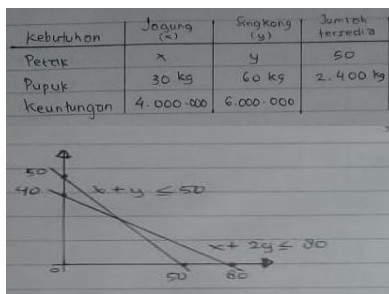 Kebutuhan Jagung (x) Singkong (y) Jumlah tersedia
Petak x y 50
Pupuk 30 kg 60 kg 2.400 kg
Keuntungan 4.000.000 6.000.000
50
40
x + y ≤ 50
x + 2y ≤ 80
0
50
80